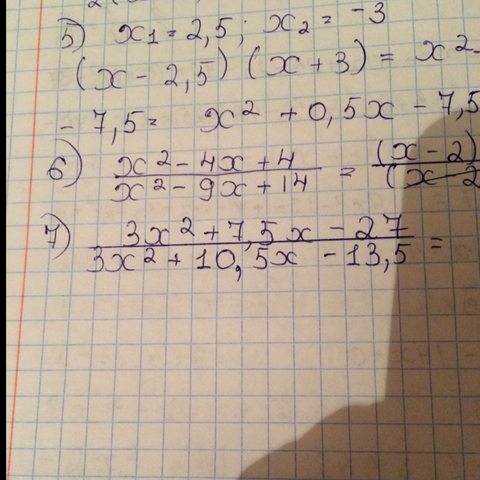 5) x₁ = 2,5; x₂ = -3
(x - 2,5) (x + 3) = x² -
- 7,5 = x² + 0,5x - 7,5
6) x² - 4x + 4 / x² - 9x + 14 = (x - 2) / (x - 2
7) 3x² + 7,5x - 27 / 3x² + 10,5x - 13,5 =